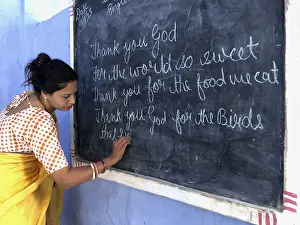 Date
Thank you God
For the world so sweet
Thank you for the food we eat
Thank you God for the Birds
that s